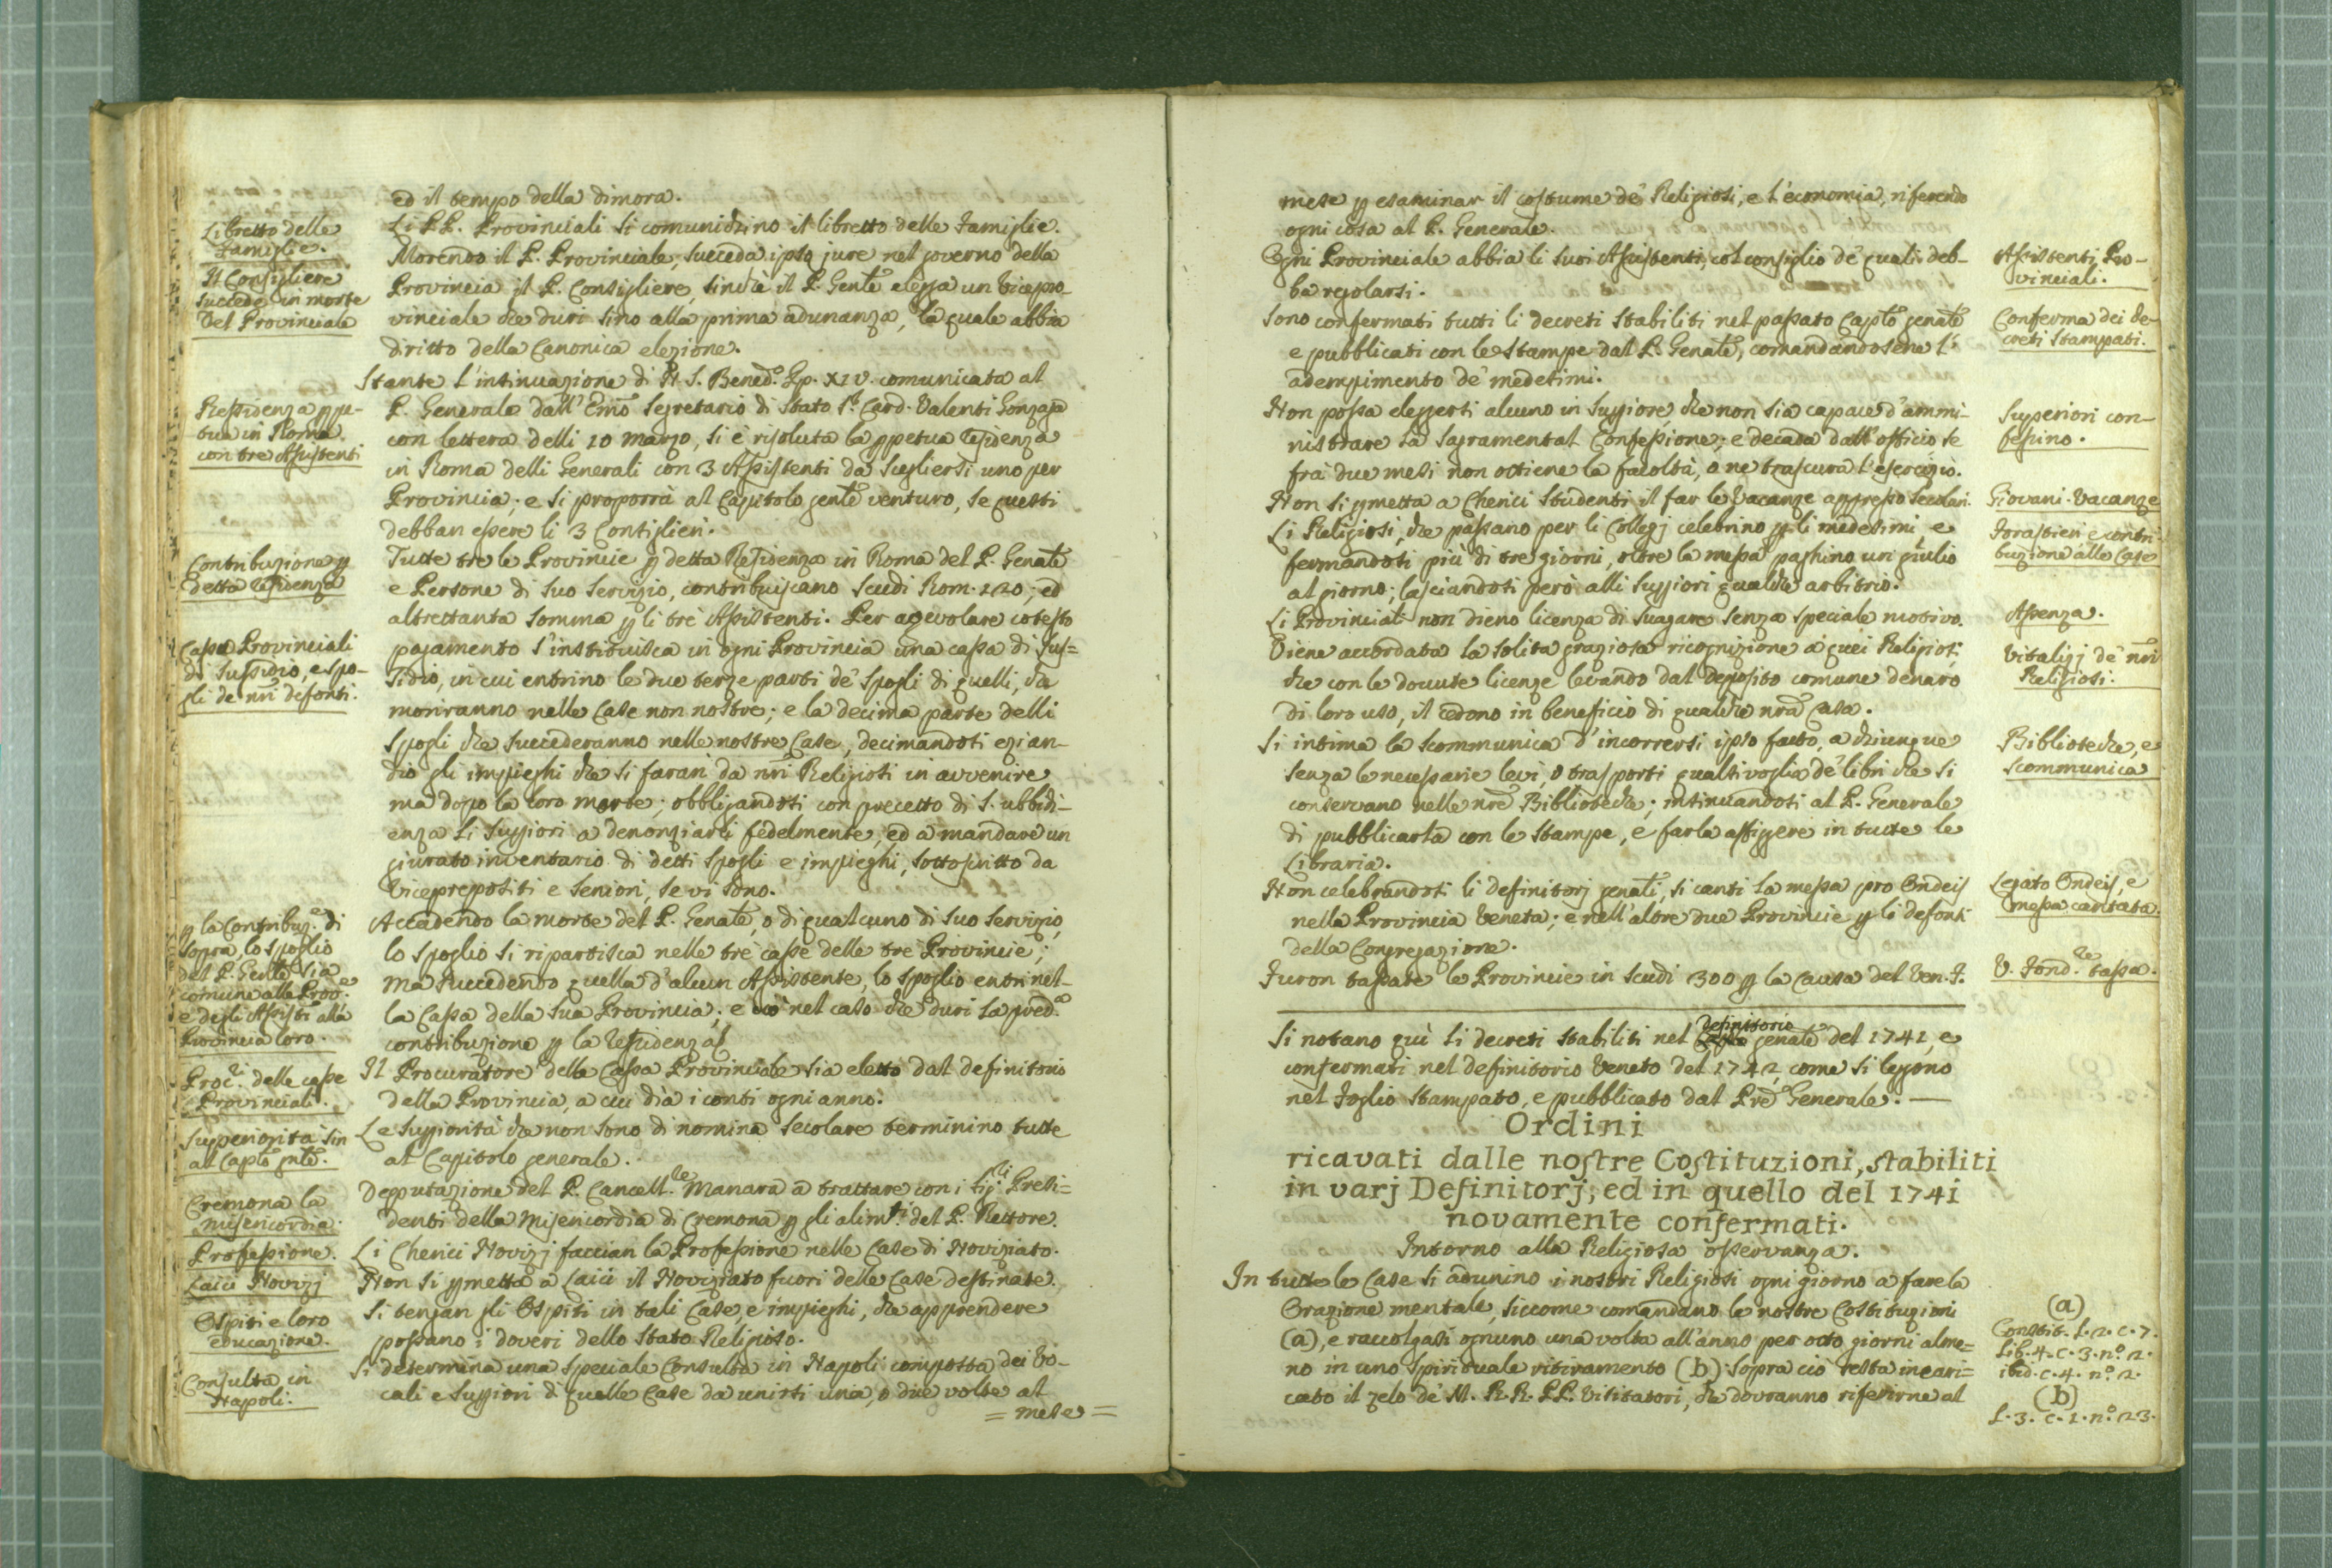 ed il tempo della dimora.
Libretto delle
Famiglie.
Li PP. Provinciali si comunichino il libretto delle Famiglie.
Il Consigliere
succede in morte
del Provinciale
Morendo il P. Provinciale, succeda ipso jure nel governo della
Provincia il P. Consigliere, sinchè il P. Gen.le elegga un Vicepro-
vinciale che duri sino alla prima adunanza, la quale abbia
diritto della Canonica elezione.
Residenza ppe-
tua in Roma
con tre Assistenti
Stante l'intimazione di N. S. Bened.o Pp. XIV. comunicata al
P. Generale dall' Emo Segretario di Stato S.r Card. Valenti Gonzaga
con lettera delli 10 marzo, si è risoluta la ppetua residenza
in Roma delli Generali con 3 Assistenti da scegliersi uno per
Provincia; e si proporrà al Capitolo gen.le venturo, se questi
debban essere li 3 Consiglieri.
Contribuzione p
detta residenza
Tutte tre le Provincie p detta Residenza in Roma del P. Genale
e Persone di suo servizio, contribuiscano Scudi Rom. 120; ed
altrettanta somma p li tre Assistenti. Per agevolare cotesto
Casse Provinciali
di sussidio, e spo-
gli de nri defonti.
pagamento s'instituisca in ogni Provincia una cassa di sus=
sidio, in cui entrino le due terze parti de' spogli di quelli, che
moriranno nelle Case non nostre; e la decima parte delli
spogli che succederanno nelle nostre Case, decimandosi ezian-
dio gli impieghi che si faran da nri Religiosi in avvenire
ma dopo la loro morte; obbligandosi con precetto di S. ubbidi-
enza li Suppiori a denonziarli fedelmente, ed a mandare un
giurato inventario di detti spogli e impieghi, sottoscritto da
Viceprepositi e Seniori, se vi sono.
p la Contribuz.e di
sopra, lo spoglio
del P. Genle sia
comune alle Prov.e
e degli Assisti alla
Provincia loro.
Accadendo la morte del P. Genale, o di qualcuno di suo servizio,
lo spoglio si ripartisca nelle tre casse delle tre Provincie;
ma succedendo quella d'alcun Assistente, lo spoglio entri nel-
la Cassa della sua Provincia; e ciò nel caso che duri la pred.a
contribuzione p la residenza.
Proc.ri delle casse
Provinciali.
Il Procuratore della Cassa Provinciale sia eletto dal definitorio
della Provincia, a cui dia i conti ogni anno.
Superiorità sin
al Capto gnle.
Le Suppiorità che non sono di nomina secolare terminino tutte
al Capitolo generale.
Cremona la
misericordia.
Deputazione del P. Cancell.le Manara a trattare con i Sig.ri Presi=
denti della Misericordia di Cremona p gli alim.ti del P. Rettore.
Professione.
Li Cherici Novizj faccian la Professione nelle Case di Noviziato.
Laici Novizj
Non si pmetta a Laici il Noviziato fuori delle Case destinate.
Ospiti e loro
educazione.
Si tengan gli Ospiti in tali Case, e impieghi, che apprendere
possano i doveri dello stato Religioso.
Consulta in
Napoli.
Si determina una speciale Consulta in Napoli composta dei Vo-
cali e Suppiori di quelle Case da unirsi una, o due volte al
= mese =
mese p esaminar il costume de' Religiosi, e l'economia, riferendo
ogni cosa al P. Generale.
Ogni Provinciale abbia li suoi Assistenti, col consiglio de' quali deb-
ba regolarsi.
Assistenti Pro-
vinciali.
Sono confermati tutti li decreti stabiliti nel passato Capto genale
e pubblicati con le stampe dal P. Genale, comandandosene l'
adempimento de' medesimi.
Conferma dei de-
creti stampati.
Non possa eleggersi alcuno in Suppiore che non sia capace d'ammi-
nistrare la sagramental Confessione; e decada dall'officio se
fra due mesi non ottiene la facoltà, o ne trascura l'esercizio.
Superiori con-
fessino.
Non si pmetta a Cherici studenti il far le vacanze appresso secolari.
Giovani. Vacanze
Li Religiosi, che passano per li Collegj celebrino p li medesimi e
fermandosi più di tre giorni, oltre la messa paghino un giulio
al giorno; lasciandosi però alli Suppiori qualche arbitrio.
Forastieri e contri-
buzione alle Case
Li Provinciali non dieno licenza di svagare senza speciale motivo.
Assenza.
Viene accordata la solita graziosa ricognizione a quei Religiosi,
che con le dovute licenze levando dal deposito comune denaro
di loro uso, il cedono in beneficio di qualche nra Casa.
Vitalizj de' nri
Religiosi.
Si intima la scommunica d'incorrersi ipso facto, a chiunque
senza le necessarie levi, o trasporti qualsivoglia de' libri che si
conservano nelle nre Biblioteche; intimandosi al P. Generale
di pubblicarla con le stampe, e farla affiggere in tutte le
Libraria.
Biblioteche, e
scommunica
Non celebrandosi li definitorj genali, si canti la messa pro Ondeis
nella Provincia Veneta; e nell'altre due Provincie p li defonti
della Congregazione.
Legato Ondeis, e
messa cantata.
Furon tassate le Provincie in scudi 300 p la causa del Ven. F.
V. Fond.re tassa.
Si notano qui li decreti stabiliti nel definitorio genale del 1741, e
confermati nel definitorio Veneto del 1742 come si leggono
nel foglio stampato, e pubblicato dal Pre Generale. —
Ordini
ricavati dalle nostre Costituzioni, stabiliti
in varj Definitorj, ed in quello del 1741
novamente confermati.
Intorno alla Religiosa osservanza.
In tutte le Case si adunino i nostri Religiosi ogni giorno a fare la
Orazione mentale, siccome comandano le nostre Costituzioni
(a), e raccolgasi ognuno una volta all'anno per otto giorni alme=
no in uno spirituale ritiramento (b): sopra ciò resta incari=
cato il zelo de' M. R. R. PP. Visitatori, che dovranno riferirne al
(a)
Constit. L. 2. c. 7.
Lib. 4. c. 3. n.o 2.
ibid. c. 4. n.o 2.
(b)
L. 3. c. 1. n.o 23.